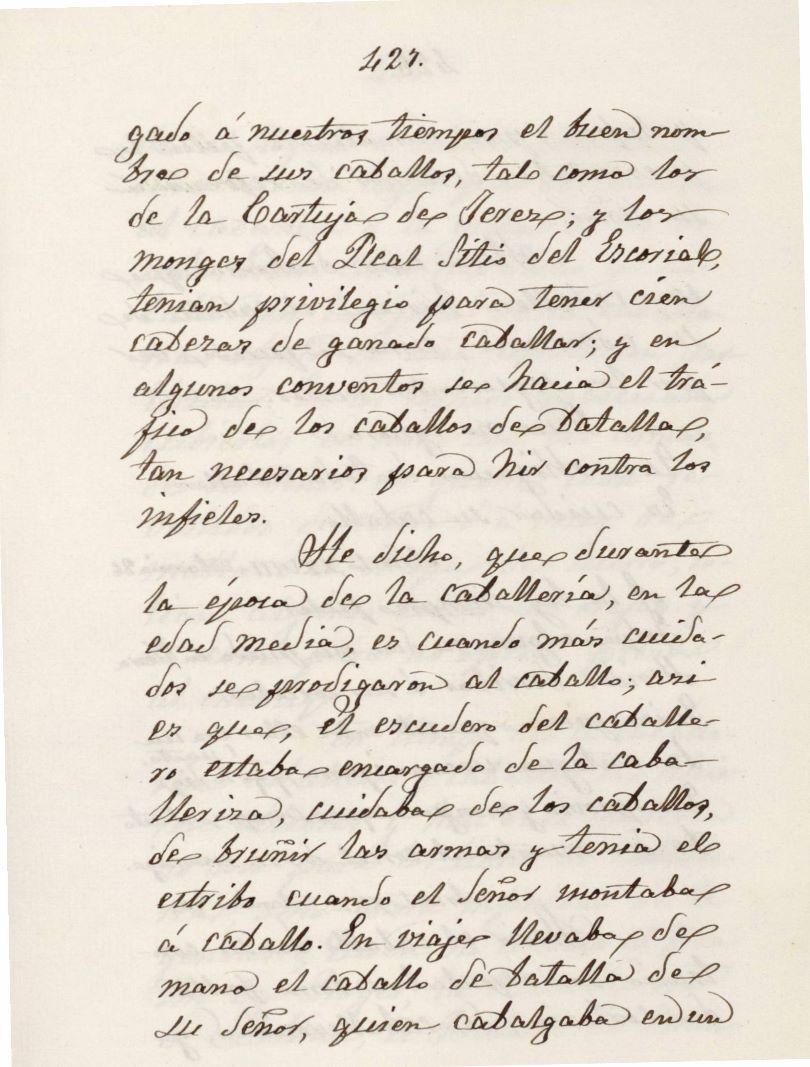 427.
gado á nuestros tiempos el buen nom-
bre de sus caballos, tal como los
de la Cartuja de Jerez; y los
monges del Real Sitio del Escorial,
tenian privilegio para tener cien
cabezas de ganado caballar; y en
algunos conventos se hacia el trá-
fico de los caballos de batalla,
tan necesarios para hir contra los
infieles.
He dicho, que durante
la época de la caballería, en la
edad media, es cuando más cuida-
dos se prodigaron al caballo; asi
es que, él escudero del caballe-
ro estaba encargado de la caba-
lleriza, cuidaba de los caballos,
de bruñir las armas y tenia el
estribo cuando el señor montaba
á caballo. En viaje llevaba de
mano el caballo de batalla de
su señor, quien cabalgaba en un